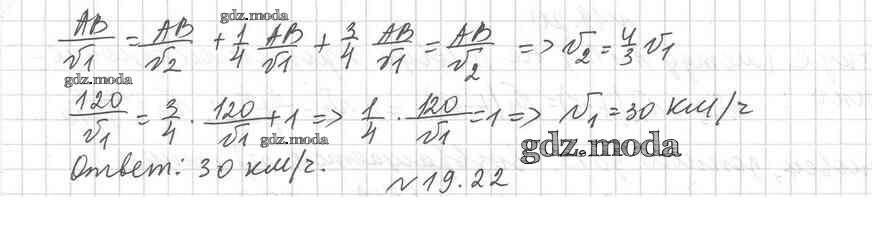 gdz.moda
AB/v1 = AB/v2 + 1/4 AB/v1 + 3/4 AB/v1 = AB/v2 => v2 = 4/3 v1
gdz.moda
120/v1 = 3/4 · 120/v1 + 1 => 1/4 · 120/v1 = 1 => v1 = 30 км/ч
gdz.moda
gdz.moda
Ответ: 30 км/ч.
№19.22